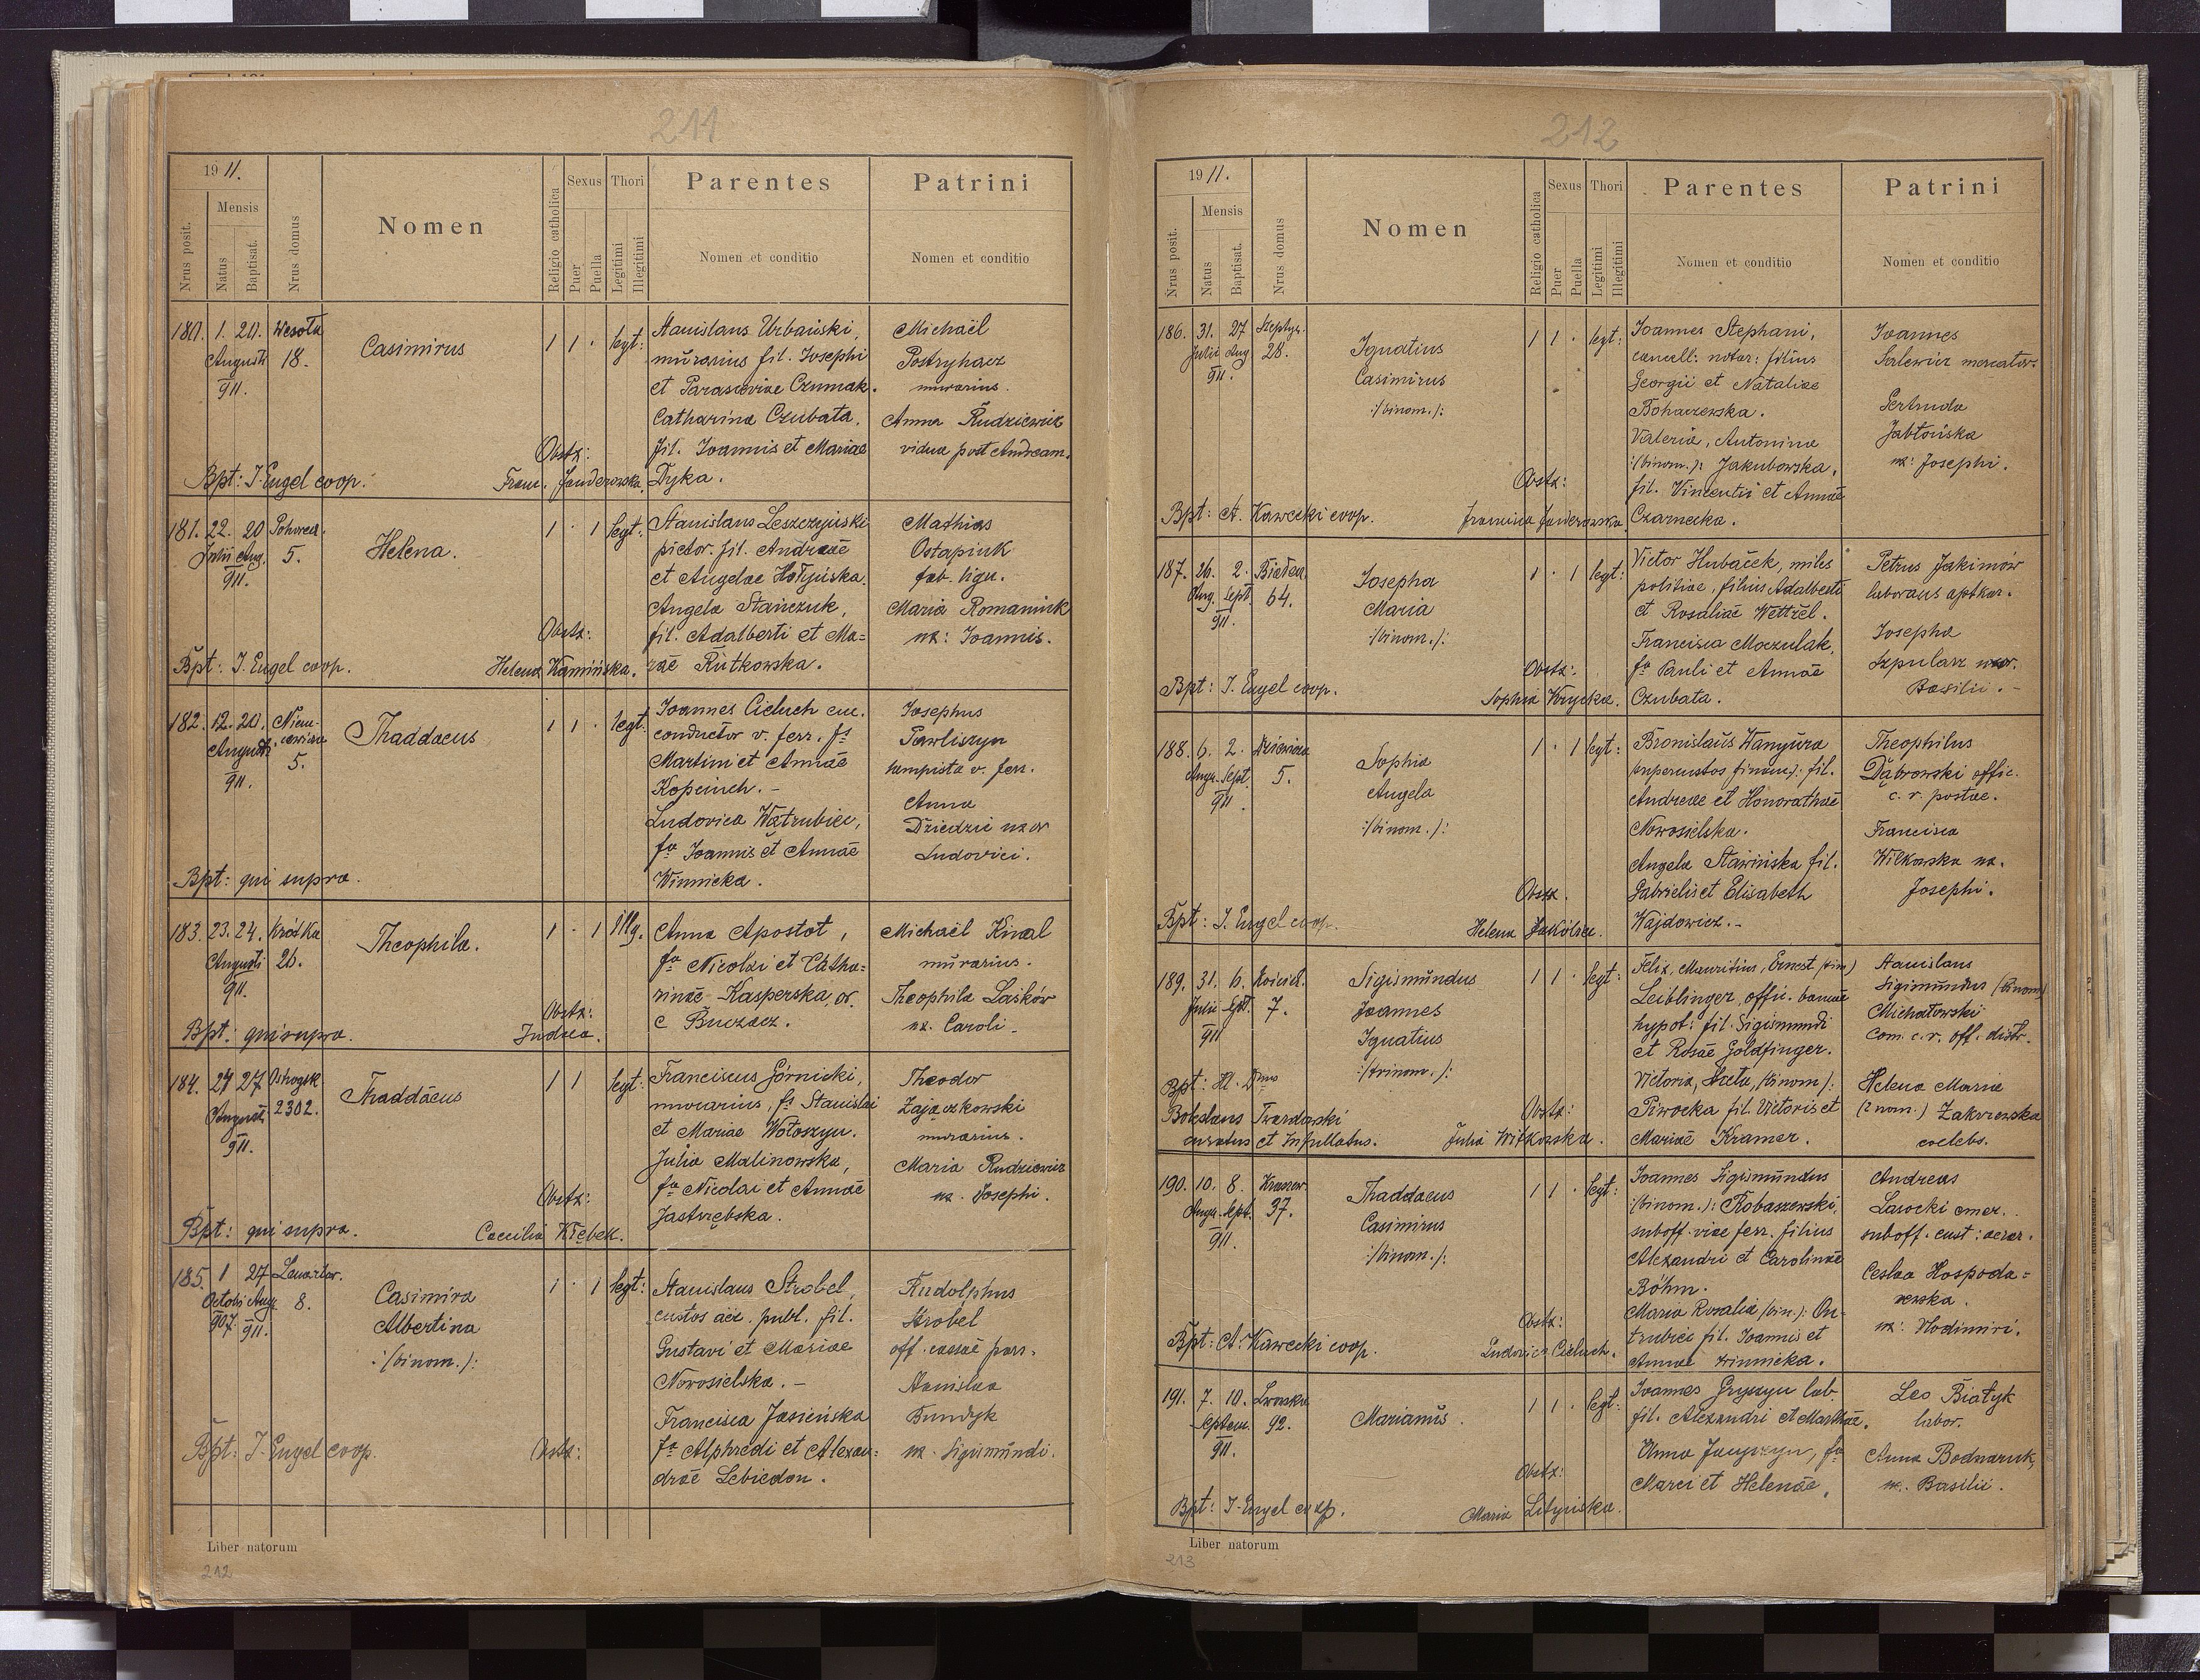 211
1911.
Nrus posit.
Mensis
Natus
Baptisat.
Nrus domus
Nomen
Religio catholica
Sexus
Puer
Puella
Thori
Legitimi
Illegitimi
Parentes
Nomen et conditio
Patrini
Nomen et conditio
180. 1. 20. Wesoła
Augusti 18.
911.
Casimirus
1 1 . legt:
Stanislaus Urbański,
murarius fil. Josephi
et Parasceviae Czumak.
Catharina Czubata,
fil. Joannis et Mariae
Dyka.
Michaël
Postryhacz
murarius.
Anna Rudziewicz
vidua post Andream.
Obstz:
Bpt: J. Engel coop.
Franc. Janderowska.
181. 22. 20
Julii Aug. 5.
911.
Helena.
1 . 1 legt:
Stanislaus Leszczyński
pictor. fil. Andreae
et Angelae Hołyńska.
Angela Stańczuk,
fil. Adalberti et Ma=
riae Rutkowska.
Mathias
Ostapiuk
fab. lign.
Maria Romaniuk
ux: Joannis.
Obstz:
Bpt: J. Engel coop.
Helena Kamińska.
182. 12. 20. Niem-
Augusti cewicza
911. 5.
Thaddaeus
1 1 . legt.
Joannes Cieluch em.
conductor v. ferr. fs
Martini et Annae
Kopciuch.-
Ludovica Wątrubici,
fa Joannis et Annae
Winnicka.
Josephus
Pawliszyn
kempista v. ferr.
Anna
Dziedzic uxor
Ludovici.
Bpt: qui supra.
183. 23. 24. Krótka
Augusti 20.
911.
Theophila.
1 . 1 Illg.
Anna Apostoł,
fa Nicolai et Catha=
rinae Kasperska, or.
e Buczacz.
Michaël Kinal
murarius.
Theophila Laśków
ux. Caroli.
Obstz:
Bpt: qui supra.
Judaea.
184. 27 27 Ostrogsk.
Augusti 2302.
911.
Thaddäcus
1 1 legt:
Franciscus Górnicki,
murarius, fs Stanislai
et Mariae Wołoszyn.
Julia Malinowska,
fa Nicolai et Annae
Jastrzębska.
Theodor
Zajączkowski
murarius.
Maria Rudziewicz
ux. Josephi.
Obstz:
Bpt: qui supra.
Caecilia Kłębek.
185. 1 27 Lenartow.
Octobr Aug 8.
907. 911.
Casimira
Albertina
:/binom.):
1 . 1 legt:
Stanislaus Strobel,
custos aed. publ. fil.
Gustavi et Mariae
Nowosielska.-
Francisca Jasieńska
fa Alphredi et Alexan=
drae Lebiedon.
Rudolphus
Strobel
off. cassae pars.
Stanislaa
Bundyk
ux. Sigismundi.
Bpt: J. Engel coop.
Obstz:
Liber natorum
212
212
1911.
Nrus posit.
Mensis
Natus
Baptisat.
Nrus domus
Nomen
Religio catholica
Sexus
Puer
Puella
Thori
Legitimi
Illegitimi
Parentes
Nomen et conditio
Patrini
Nomen et conditio
186. 31. 27 Szeptyc.
Julii Aug 28.
911.
Ignatius
Casimirus
:/binom.):
1 1 . legt:
Joannes Stephani,
cancell: notar: filius
Georgii et Nataliae
Bohaczewska.
Valeria, Antonina
:/binom.): Jakubowska,
fil. Vincentii et Annae
Czarnecka.
Joannes
mercator.
Gertruda
Jabłońska
ux: Josephi.
Obstz:
Bpt: A. Kawecki coop.
Francisca Janderowska
187. 26. 2.
Aug. Sept. 64.
911.
Josepha
Maria
:/binom.):
1 . 1 legt:
Victor Hubaček, miles
politiae, filius Adalberti
et Rosaliae Wettzel.
Francisca Moczulak,
fa Pauli et Annae
Czubata.
Petrus Jakimów
laborans aptkar.
Josepha
Szpularz uxor.
Basilii.-
Obstz:
Bpt: J. Engel coop.
Sophia Krycka.
188. 6. 2.
Aug. Sept. 5.
911.
Sophia
Angela
:/binom.):
1 . 1 legt:
Bronislaus Wanyura
supercustos finanz.): fil.
Andreae et Honorathae
Nowosielska.
Angela Sławińska fil.
Gabrielis et Elisabeth
Wajdowicz.-
Theophilus
Dąbrowski offic.
c. r. postae.
Francisca
Wilkowska ux.
Josephi.
Obstz.
Bpt: J. Engel coop.
Helena Sokólska.
189. 31. 6.
Julii Sept. 7.
911
Sigismundus
Joannes
Ignatius
:/trinom.):
1 1 . legt:
Felix, Mauritius, Ernest /trin)
Leiblinger, offic. bancae
hypot: fil. Sigismundi
et Rosae Goldfinger.
Victoria, Aneta, /binom):
Piwocka fil. Victoris et
Mariae Kramer.
Stanislaus
Sigismundus (binom)
Michałowski
com. c. r. off. distr.
Helena Maria
(2 nom.) Zakrzewska
coelebs.
Bpt: Ill. Dmns
Bohdanus Twardawski
curatus et Infullatus.
Obstz:
Julia Witkowska.
190. 10. 8.
Aug. Sept. 37.
911.
Thaddaeus
Casimirus
:/binom.):
1 1 . legt:
Joannes Sigismundus
:/binom.): Robaszewski,
suboff. viae ferr. filius
Alexandri et Carolinae
Böhm.
Maria Rosalia /bin.): On-
trubici fil. Joannis et
Annae Winnicka.
Andreas
Lasocki emer.
suboff. cust: aerar.
Ceslaa Hospoda=
rewska.
ux: Vlodimiri.
Obstz:
Bpt: A. Kawecki coop.
Ludovica Cieluch.
191. 7. 10. Lwowska
Septem. 92.
911.
Marianus.
1 1 . legt:
Joannes Gryszyn lab.
fil. Alexandri et Marthae.
Anna fa
Marci et Helenae.
Leo Białyk
labor.
Anna Bodnaruk,
ux. Basilii.
Obstz:
Bpt: J. Engel coop.
Maria Lityńska.
Liber natorum
213